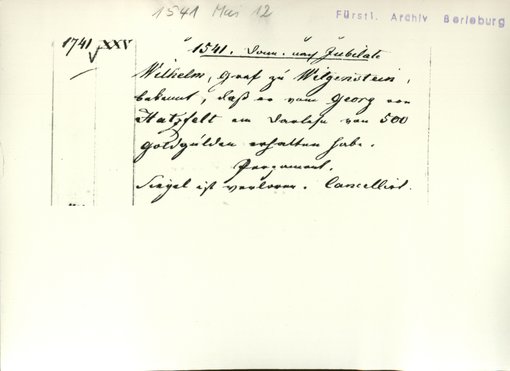 1541 Mai 12
Fürstl. Archiv Berleburg
1741 XXV
1541. Donn. nach Jubilate
Wilhelm, Graf zu Witgenstein,
bekennt, daß er vom Georg von
Hatzfelt ein Darlehn von 500
Goldgülden erhalten habe.
Pergament.
Siegel ist verloren. Cancellirt.